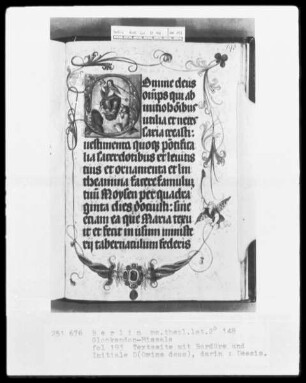 Omine deus
om̄ps qui ab
initio hoībus
utilia et neces
saria creasti:
uestimenta quoq; pōtifica
lia sacerdotibus et leuitis
tuis et ornamenta et lin
theamina facere famulum
tuū Moysen per quadra
ginta dies docuisti: siue
etiam ea que Maria texu
it et fecit in usum ministe
rij tabernaculum federis
B e r l i n   ms.theol.lat.2° 148
Glockendon-Missale
fol 191 Textseite mit Bordüre und
Initiale D(Omine deus), darin :